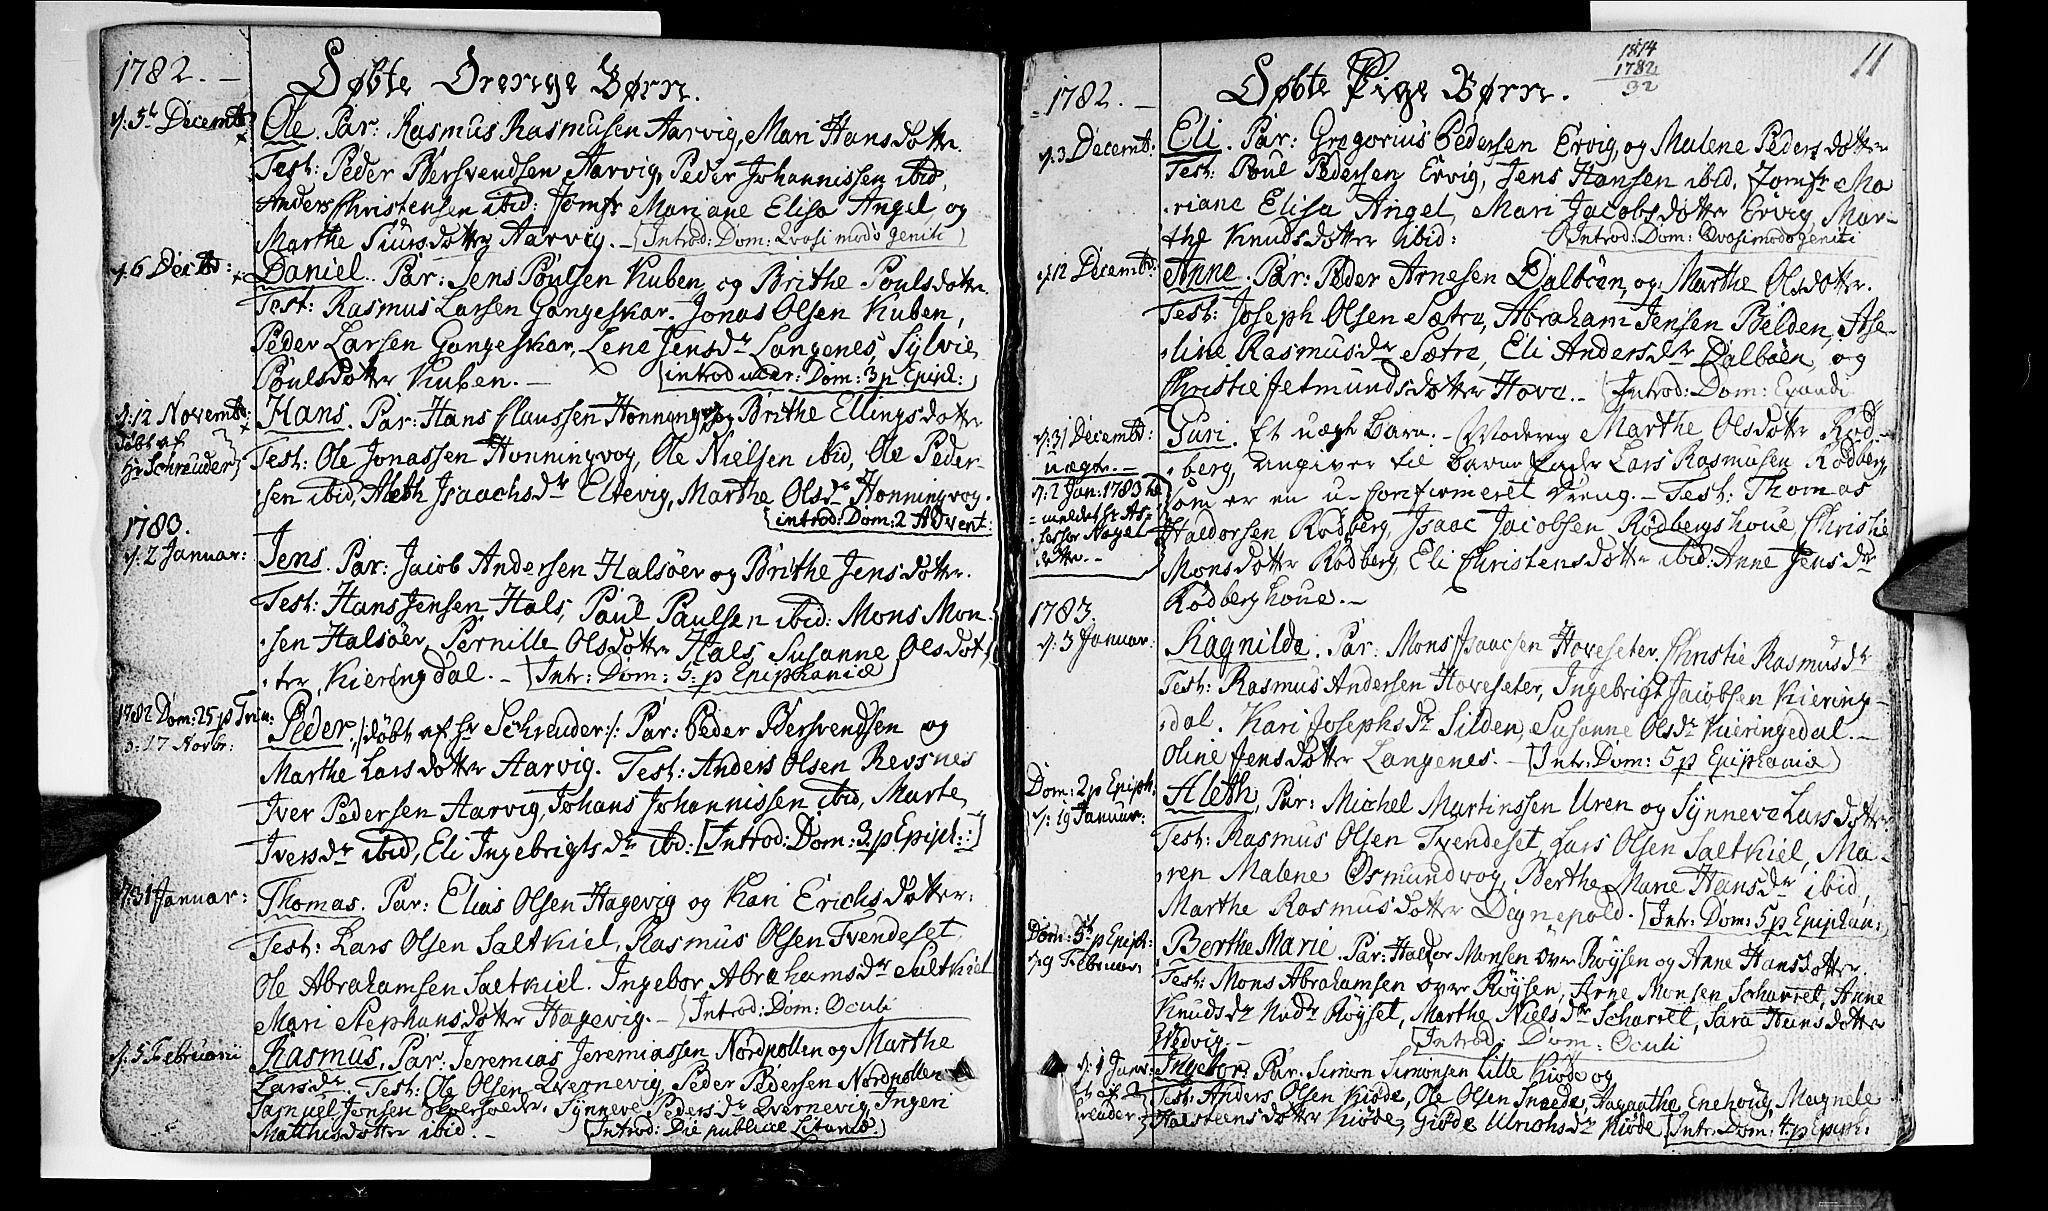 1782. —
Døbte Drenge Børn.
d: 5t Decembr:
Ole. Par: Rasmus Rasmusen Aarvig, Mari Hansdotter.
Test: Peder Bersvendsen Aarvig, Peder Johannissen ibid,
Anders Christensen ibid: Jomfr Mariane Elisa Angel, og
Marthe Siursdotter Aarvig. — [Introd: Dom: Qvasimodo Geniti]
d. 6 Dec
Daniel. Par: Jens Poulsen Kuben og Brithe Poulsdotter.
Test: Rasmus Larsen Gangeskar. Jonas Olsen Kuben,
Peder Larsen Gangeskar, Lene Jensdr Langenes, Sylvie
Poulsdotter Kuben. — [introducer: Dom: 3 p Epiph:]
d: 12 Novembr:
døbt af
Hr Schreuder
Hans. Par: Hans Claussen Honningvog, Brithe Ellingsdotter
Test: Ole Jonassen Honningvog, Ole Nielsen ibid, Ole Peder-
sen ibid, Aleth Isaachsdr Eltevig, Marthe Olsdr Honningvog.
[introd: Dom: 2 Advent:
1783.
d: 2 Januar:
Jens. Par: Jacob Andersen Halsøer og Brithe Jensdotter.
Test: Hans Jensen Hals, Paul Paulsen ibid: Mons Mon-
sen Halsøer, Pernille Olsdotter Hals, Susanne Olsdot-
ter Kieringdal. — [Intr: Dom: 5: p Epiphaniæ]
1782 Dom: 25 p Trin:
d: 17 Novbr:
Peder, /: døbt af Hr Schreuder :/. Par: Peder Bersvendsen og
Marthe Larsdotter Aarvig. Test: Anders Olsen Revsnes
Iver Pedersen Aarvig, Johans Johannissen ibid, Marte
Iversdr ibid, Eli Ingebrigtsdr ibd: [Introd: Dom: 3 p Epiph::]
d: 31 Januar:
Thomas. Par: Elias Olsen Hagevig og Kari Erichsdotter:
Test: Lars Olsen Saltkiel, Rasmus Olsen Tvendeset,
Ole Abrahamsen Saltkiel. Ingebor Abrahamsdr Saltkiel
Mari Stephansdotter Hagevig. — [Introd: Dom: Oculi
d. 5 Februarii
Rasmus. Par: Jeremias Jeremiassen Nordpollen og Marthe
Larsdr Test: Ole Olsen Qvernevig, Peder Pedersen Nordpollen
Samuel Jonsen Synneve Pedersdr Qvernevig, Ingeri
Matthisdotter ibid. — [Introd: Die publicæ Litaniæ.]
1814
1782
32
11
1782. —
Døbte Pige Børn.
d. 3 Decembr:
Eli. Par: Gregorius Pedersen Ervig, og Malene Pedersdotter
Test: Poul Pedersen Ervig, Jens Hansen ibid. Jomfr Ma
riane Elisa Angel, Mari Jacobsdotter Ervig, Mar-
the Knudsdotter ibid: [Introd: Dom: Qvasimodo Geniti
d. 12 Decembr:
Anne. Par: Peder Arnesen Dalbøen, og Marthe Olsdotter.
Test: Joseph Olsen Sætre, Abraham Jensen Belden, Ase-
line Rasmusdr Sætre, Eli Andersdr Dalbøen, og
Christie Jetmundsdotter Hove. — [Introd: Dom: Exaudi
d: 31 Decembr:
uægte. —
d: 2 Jan: 1783 be
meldet Hr As-
sessor Nagel
dette. —
Guri. Et uægte Barn. — Moderen Marthe Olsdotter Rød-
berg, angiver til Barnefader Lars Rasmusen Rødberg,
som er en u-confirmeret Dreng. — Test: Thomas
Haldorsen Rødberg, Isaac Jacobsen Rødbergshoue Christie
Monsdotter Rødberg, Eli Christensdotter ibid: Anne Jensdr
Rødberghoue. —
1783.
d. 3 Januar:
Ragnilde. Par: Mons Isaacsen Hoveseter. Christie Rasmusdr
Test: Rasmus Andersen Hoveseter, Ingebrigt Jacobsen Kiering-
dal. Kari Josephsdr Silden, Susanne Olsdr Kieringedal. —
Oline Jensdotter Langenes. — [Intr: Dom: 5 p Epiphaniæ]
Dom: 2 p Epiph:
d: 19 Januar:
Aleth, Par: Michel Martinssen Uren og Synneve Larsdotter
Test: Rasmus Olsen Tvendeset, Lars Olsen Saltkiel, Ma-
ren Malene Osmundvog, Berthe Marie Hansdr ibid,
Marthe Rasmusdotter Degnepold. [Intr: Dom: 5 p Epiphan:
Dom: 5t p Epiph:
d. 9 Februar
Berthe Marie. Par: Haldor Monsen over Røysen og Anne Hansdotter.
Test: Mons Abrahamsen over Røysen, Arne Monsen Scharret, Anne
Knudsdr Nedr Røyset, Marthe Nielsdr Scharret, Sara Hansdotter
Vedvig. — [Introd: Dom: Oculi
d: 1 Janr:
Ingebor: Par: Simon Simonsen Lille Kiøde og
Test: Anders Olsen Kiøde, Ole Olsen Agaathe Enehoug, Magnele
Halsteensdotter Kiøde, Giøde Ulrichsdr Kiøde [Intr: Dom: 4 p Epiph: